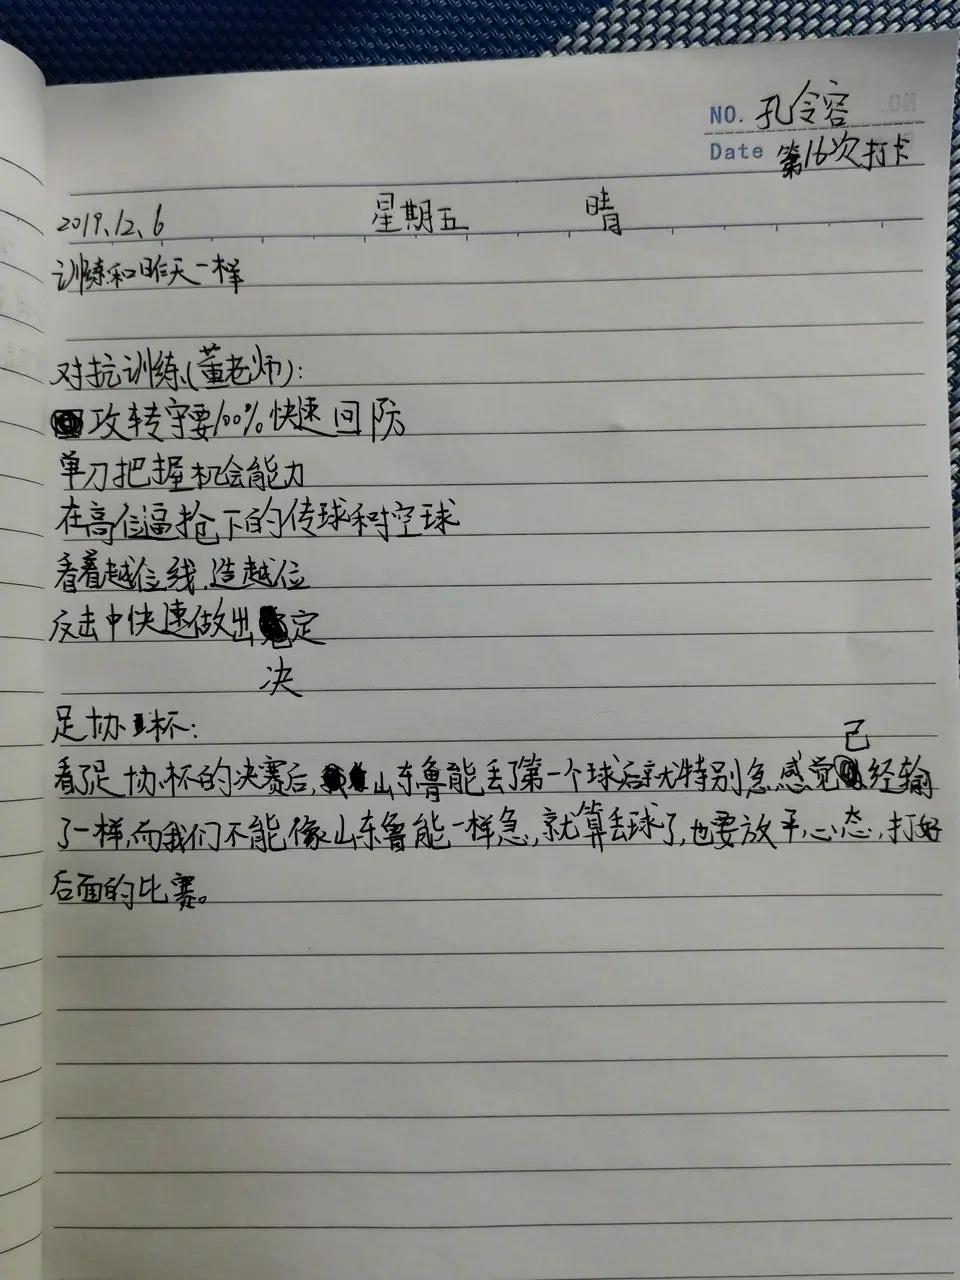 NO. 孔令容
Date 第16次打卡
2019.12.6 星期五 晴
训练和昨天一样
对抗训练(董老师):
攻转守要100%快速回防
单刀把握机会能力
在高位逼抢下的传球和控球
看着越位线,造越位
反击中快速做出定
决
足协杯:
己
看了足协杯的决赛后,山东鲁能丢了第一个球后就特别急感觉经输
了一样,而我们不能像山东鲁能一样急,就算丢球了,也要放平心态,打好
后面的比赛。